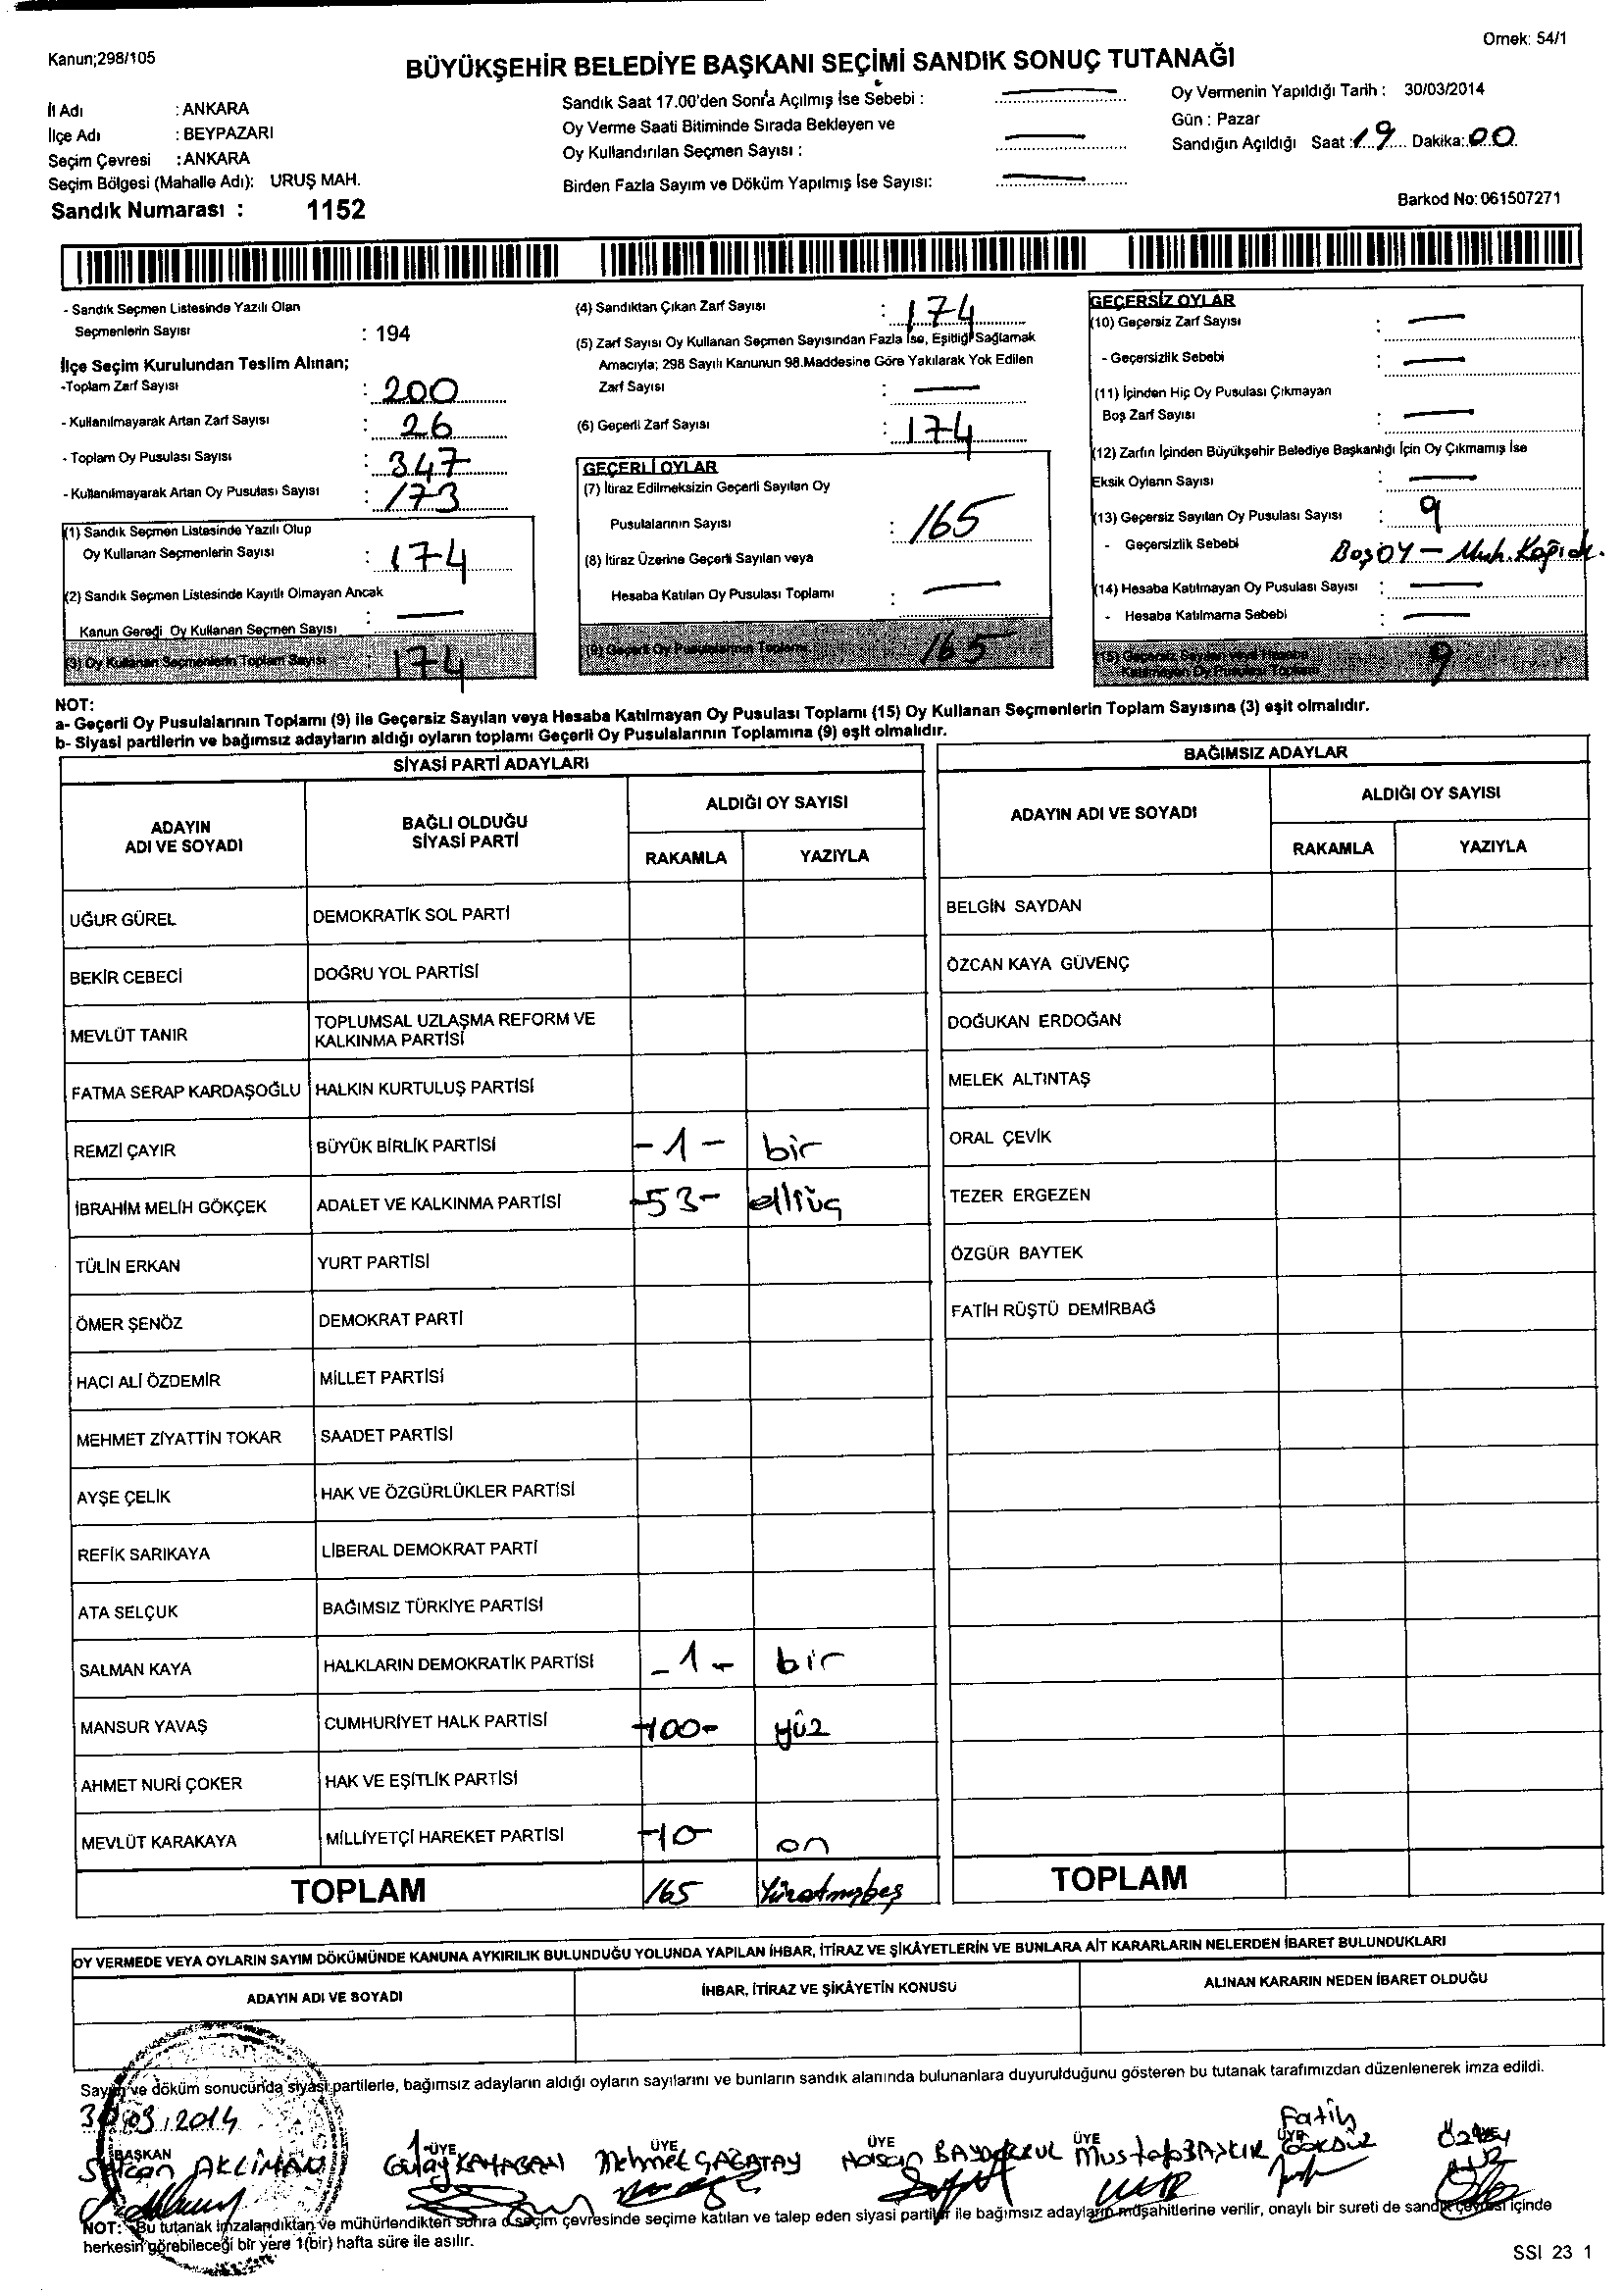 Kanun;298/105
Örnek: 54/1
BÜYÜKŞEHİR BELEDİYE BAŞKANI SEÇİMİ SANDIK SONUÇ TUTANAĞI
İl Adı : ANKARA
İlçe Adı : BEYPAZARI
Seçim Çevresi : ANKARA
Seçim Bölgesi (Mahalle Adı): URUŞ MAH.
Sandık Numarası : 1152
Sandık Saat 17.00'den Sonra Açılmış İse Sebebi :
Oy Verme Saati Bitiminde Sırada Bekleyen ve
Oy Kullandırılan Seçmen Sayısı :
Birden Fazla Sayım ve Döküm Yapılmış İse Sayısı:
Oy Vermenin Yapıldığı Tarih : 30/03/2014
Gün : Pazar
Sandığın Açıldığı Saat : 19 Dakika: 00
Barkod No: 061507271
- Sandık Seçmen Listesinde Yazılı Olan
Seçmenlerin Sayısı : 194
İlçe Seçim Kurulundan Teslim Alınan;
-Toplam Zarf Sayısı : 200
- Kullanılmayarak Artan Zarf Sayısı : 26
- Toplam Oy Pusulası Sayısı : 347
- Kullanılmayarak Artan Oy Pusulası Sayısı : 173
(1) Sandık Seçmen Listesinde Yazılı Olup
Oy Kullanan Seçmenlerin Sayısı : 174
(2) Sandık Seçmen Listesinde Kayıtlı Olmayan Ancak
Kanun Gereği Oy Kullanan Seçmen Sayısı : —
(3) Oy Kullanan Seçmenlerin Toplam Sayısı : 174
(4) Sandıktan Çıkan Zarf Sayısı : 174
(5) Zarf Sayısı Oy Kullanan Seçmen Sayısından Fazla İse, Eşitliği Sağlamak
Amacıyla; 298 Sayılı Kanunun 98.Maddesine Göre Yakılarak Yok Edilen
Zarf Sayısı : —
(6) Geçerli Zarf Sayısı : 174
GEÇERLİ OYLAR
(7) İtiraz Edilmeksizin Geçerli Sayılan Oy
Pusulalarının Sayısı : 165
(8) İtiraz Üzerine Geçerli Sayılan veya
Hesaba Katılan Oy Pusulası Toplamı : —
(9) Geçerli Oy Pusulalarının Toplamı 165
GEÇERSİZ OYLAR
(10) Geçersiz Zarf Sayısı : —
- Geçersizlik Sebebi : —
(11) İçinden Hiç Oy Pusulası Çıkmayan
Boş Zarf Sayısı : —
(12) Zarfın İçinden Büyükşehir Belediye Başkanlığı İçin Oy Çıkmamış İse
Eksik Oyların Sayısı : —
(13) Geçersiz Sayılan Oy Pusulası Sayısı : 9
- Geçersizlik Sebebi Boş OY —
(14) Hesaba Katılmayan Oy Pusulası Sayısı : —
- Hesaba Katılmama Sebebi : —
(15) Geçersiz Sayılan veya Hesaba
Katılmayan Oy Pusulası Toplamı 9
NOT:
a- Geçerli Oy Pusulalarının Toplamı (9) ile Geçersiz Sayılan veya Hesaba Katılmayan Oy Pusulası Toplamı (15) Oy Kullanan Seçmenlerin Toplam Sayısına (3) eşit olmalıdır.
b- Siyasi partilerin ve bağımsız adayların aldığı oyların toplamı Geçerli Oy Pusulalarının Toplamına (9) eşit olmalıdır.
SİYASİ PARTİ ADAYLARI
ADAYIN
ADI VE SOYADI
BAĞLI OLDUĞU
SİYASİ PARTİ
ALDIĞI OY SAYISI
RAKAMLA YAZIYLA
UĞUR GÜREL DEMOKRATİK SOL PARTİ
BEKİR CEBECİ DOĞRU YOL PARTİSİ
MEVLÜT TANIR TOPLUMSAL UZLAŞMA REFORM VE
KALKINMA PARTİSİ
FATMA SERAP KARDAŞOĞLU HALKIN KURTULUŞ PARTİSİ
REMZİ ÇAYIR BÜYÜK BİRLİK PARTİSİ -1- bir
İBRAHİM MELİH GÖKÇEK ADALET VE KALKINMA PARTİSİ -53- elliüç
TÜLİN ERKAN YURT PARTİSİ
ÖMER ŞENÖZ DEMOKRAT PARTİ
HACI ALİ ÖZDEMİR MİLLET PARTİSİ
MEHMET ZİYATTİN TOKAR SAADET PARTİSİ
AYŞE ÇELİK HAK VE ÖZGÜRLÜKLER PARTİSİ
REFİK SARIKAYA LİBERAL DEMOKRAT PARTİ
ATA SELÇUK BAĞIMSIZ TÜRKİYE PARTİSİ
SALMAN KAYA HALKLARIN DEMOKRATİK PARTİSİ -1- bir
MANSUR YAVAŞ CUMHURİYET HALK PARTİSİ -100- yüz
AHMET NURİ ÇOKER HAK VE EŞİTLİK PARTİSİ
MEVLÜT KARAKAYA MİLLİYETÇİ HAREKET PARTİSİ -10- on
TOPLAM 165 Yüzatmışbeş
BAĞIMSIZ ADAYLAR
ADAYIN ADI VE SOYADI
ALDIĞI OY SAYISI
RAKAMLA YAZIYLA
BELGİN SAYDAN
ÖZCAN KAYA GÜVENÇ
DOĞUKAN ERDOĞAN
MELEK ALTINTAŞ
ORAL ÇEVİK
TEZER ERGEZEN
ÖZGÜR BAYTEK
FATİH RÜŞTÜ DEMİRBAĞ
TOPLAM
OY VERMEDE VEYA OYLARIN SAYIM DÖKÜMÜNDE KANUNA AYKIRILIK BULUNDUĞU YOLUNDA YAPILAN İHBAR, İTİRAZ VE ŞİKÂYETLERİN VE BUNLARA AİT KARARLARIN NELERDEN İBARET BULUNDUKLARI
ADAYIN ADI VE SOYADI İHBAR, İTİRAZ VE ŞİKÂYETİN KONUSU ALINAN KARARIN NEDEN İBARET OLDUĞU
Sayım ve döküm sonucunda siyasi partilerle, bağımsız adayların aldığı oyların sayılarını ve bunların sandık alanında bulunanlara duyurulduğunu gösteren bu tutanak tarafımızdan düzenlenerek imza edildi.
30.03.2014
BAŞKAN ÜYE ÜYE ÜYE ÜYE ÜYE
AKLIMAN Gülay Mehmet ÇAĞATAY Mustafa Fatih
NOT: Bu tutanak imzalandıktan ve mühürlendikten sonra o seçim çevresinde seçime katılan ve talep eden siyasi partiler ile bağımsız adayların müşahitlerine verilir, onaylı bir sureti de sandık çevresi içinde
herkesin görebileceği bir yere 1(bir) hafta süre ile asılır.
SSI 23 1